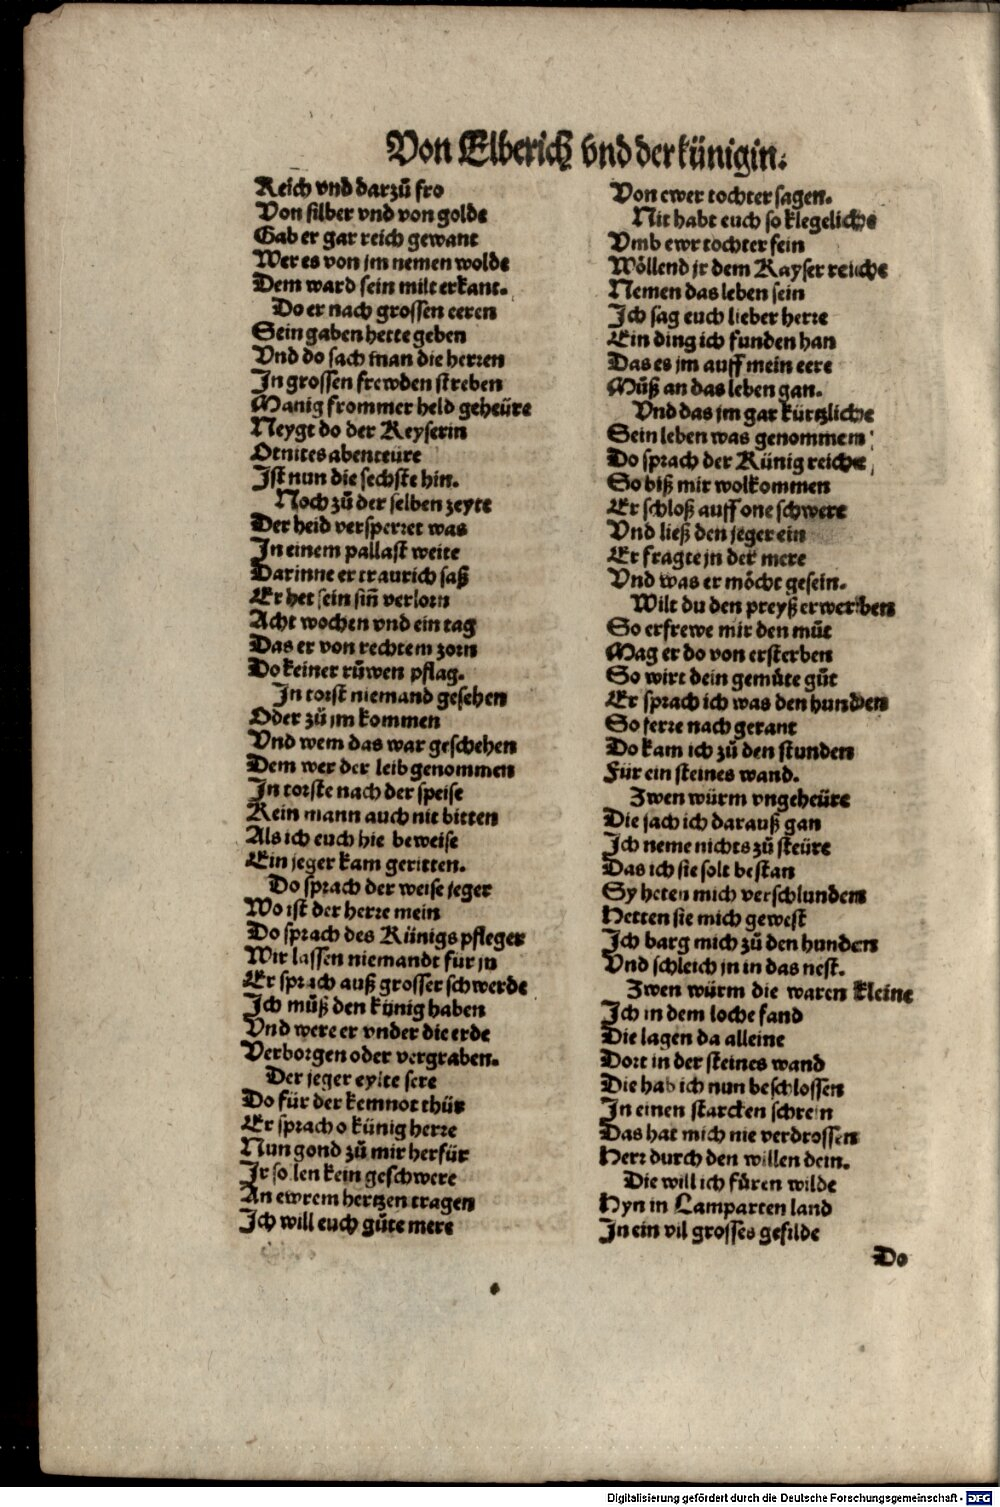 Von Elberich vnd der künigin.
Reich vnd darzů fro
Von silber vnd von golde
Gab er gar reich gewant
Wer es von jm nemen wolde
Dem ward sein milt erkant.
Do er nach grossen eeren
Sein gaben hette geben
Vnd do sach man die herren
In grossen frewden streben
Manig frommer held geheüre
Neygt do der Keyserin
Otnites abenteüre
Ist nun die sechste hin.
Noch zů der selben zeyte
Der heid versperret was
In einem pallast weite
Darinne er traurich saß
Er het sein siñ verlorn
Acht wochen vnd ein tag
Das er von rechtem zorn
Do keiner růwen pflag.
In torst niemand gesehen
Oder zů jm kommen
Vnd wem das war geschehen
Dem wer der leib genommen
In torste nach der speise
Kein mann auch nit bitten
Als ich euch hie beweise
Ein jeger kam geritten.
Do sprach der weise jeger
Wo ist der herre mein
Do sprach des Künigs pfleger
Wir lassen niemandt fur jn
Er sprach auß grosser schwerde
Ich můß den künig haben
Vnd were er vnder die erde
Verborgen oder vergraben.
Der jeger eylte sere
Do für der kemnot thür
Er sprach o künig herre
Nun gond zů mir herfür
Ir solen kein geschwere
An ewrem hertzen tragen
Ich will euch gůte mere
Von ewer tochter sagen.
Nit habt euch so klegeliche
Vmb ewr tochter fein
Wöllend jr dem Kayser reiche
Nemen das leben sein
Ich sag euch lieber herre
Ein ding ich funden han
Das es jm auff mein eere
Můß an das leben gan.
Vnd das jm gar kürtzliche
Sein leben was genommem
Do sprach der Künig reiche
So biß mir wolkommen
Er schloß auff one schwere
Vnd ließ den jeger ein
Er fragte jn der mere
Vnd was er möcht gesein.
Wilt du den preyß erwerben
So erfrewe mir den můt
Mag er do von ersterben
So wirt dein gemüte gůt
Er sprach ich was den hunden
So ferre nach gerant
Do kam ich zů den stunden
Für ein steines wand.
Zwen würm vngeheüre
Die sach ich darauß gan
Ich neme nichts zů steüre
Das ich sie solt bestan
Sy heten mich verschlunden
Hetten sie mich gewest
Ich barg mich zů den hunden
Vnd schleich jn in das nest.
Zwen würm die waren kleine
Ich in dem loche fand
Die lagen da alleine
Dort in der steines wand
Die hab ich nun beschlossen
In einen starcken schrein
Das hat mich nie verdrossen
Herr durch den willen dein.
Die will ich füren wilde
Hyn in Lamparten land
In ein vil grosses gefilde
Do
Digitalisierung gefördert durch die Deutsche Forschungsgemeinschaft - DFG